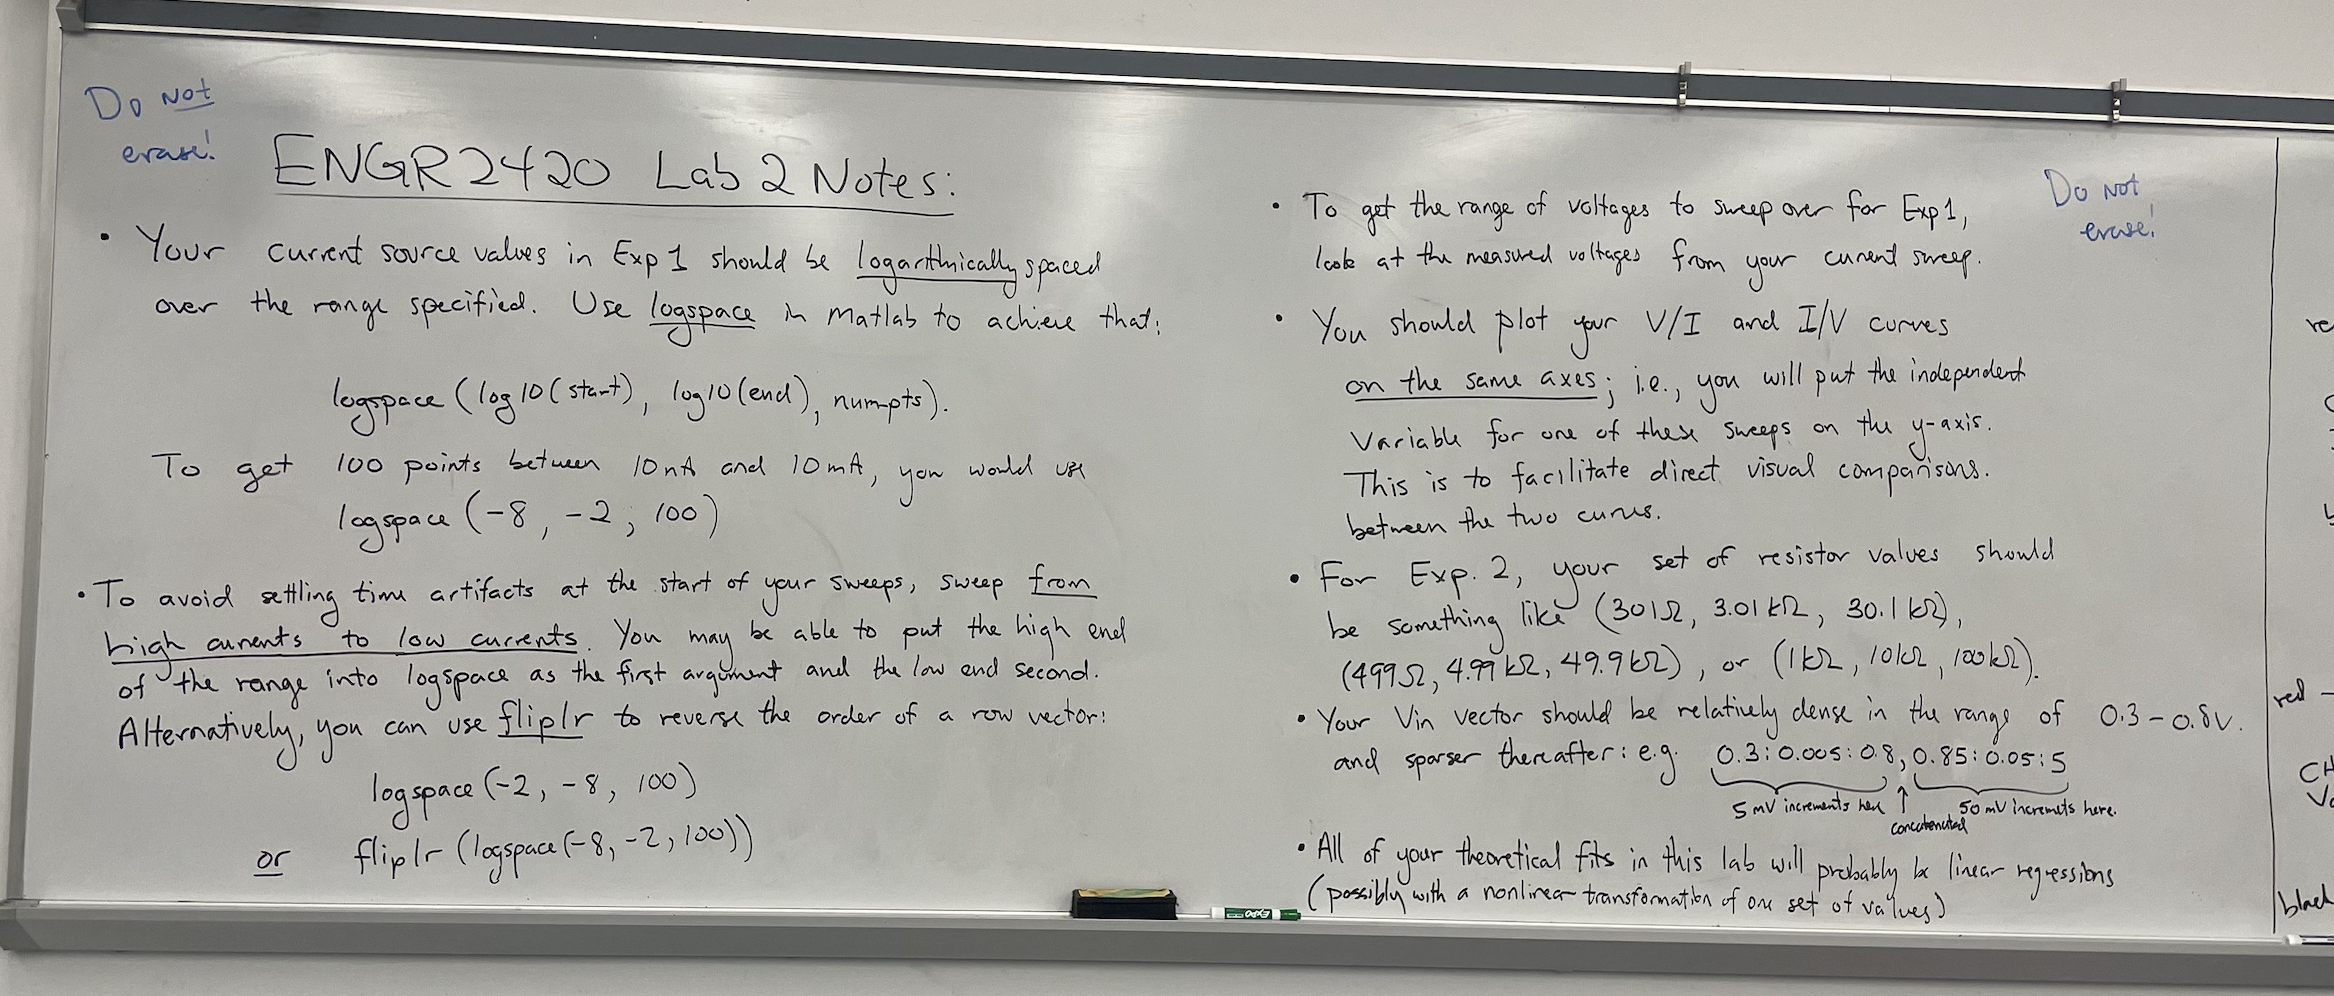 Do Not
erase!
ENGR2420 Lab 2 Notes:
• Your current source values in Exp 1 should be logarithmically spaced
over the range specified. Use logspace in Matlab to achieve that:
logspace (log10(start), log10(end), numpts).
To get 100 points between 10nA and 10mA, you would use
logspace (-8, -2, 100)
• To avoid settling time artifacts at the start of your sweeps, sweep from
high currents to low currents. You may be able to put the high end
of the range into logspace as the first argument and the low end second.
Alternatively, you can use fliplr to reverse the order of a row vector:
logspace (-2, -8, 100)
or fliplr (logspace(-8, -2, 100))
Do Not
erase!
• To get the range of voltages to sweep over for Exp 1,
look at the measured voltages from your current sweep.
• You should plot your V/I and I/V curves
on the same axes; i.e., you will put the independent
Variable for one of these sweeps on the y-axis.
This is to facilitate direct visual comparisons.
between the two curves.
• For Exp. 2, your set of resistor values should
be something like (301Ω, 3.01kΩ, 30.1kΩ),
(499Ω, 4.99kΩ, 49.9kΩ), or (1kΩ, 10kΩ, 100kΩ).
• Your Vin vector should be relatively dense in the range of 0.3-0.8V.
and sparser thereafter: e.g. 0.3:0.005:0.8, 0.85:0.05:5
5 mV increments here ↑ 50 mV incremets here.
concatenated
• All of your theoretical fits in this lab will probably be linear regressions
(possibly with a nonlinear transformation of one set of values)
EXPO
re
red -
CH
black